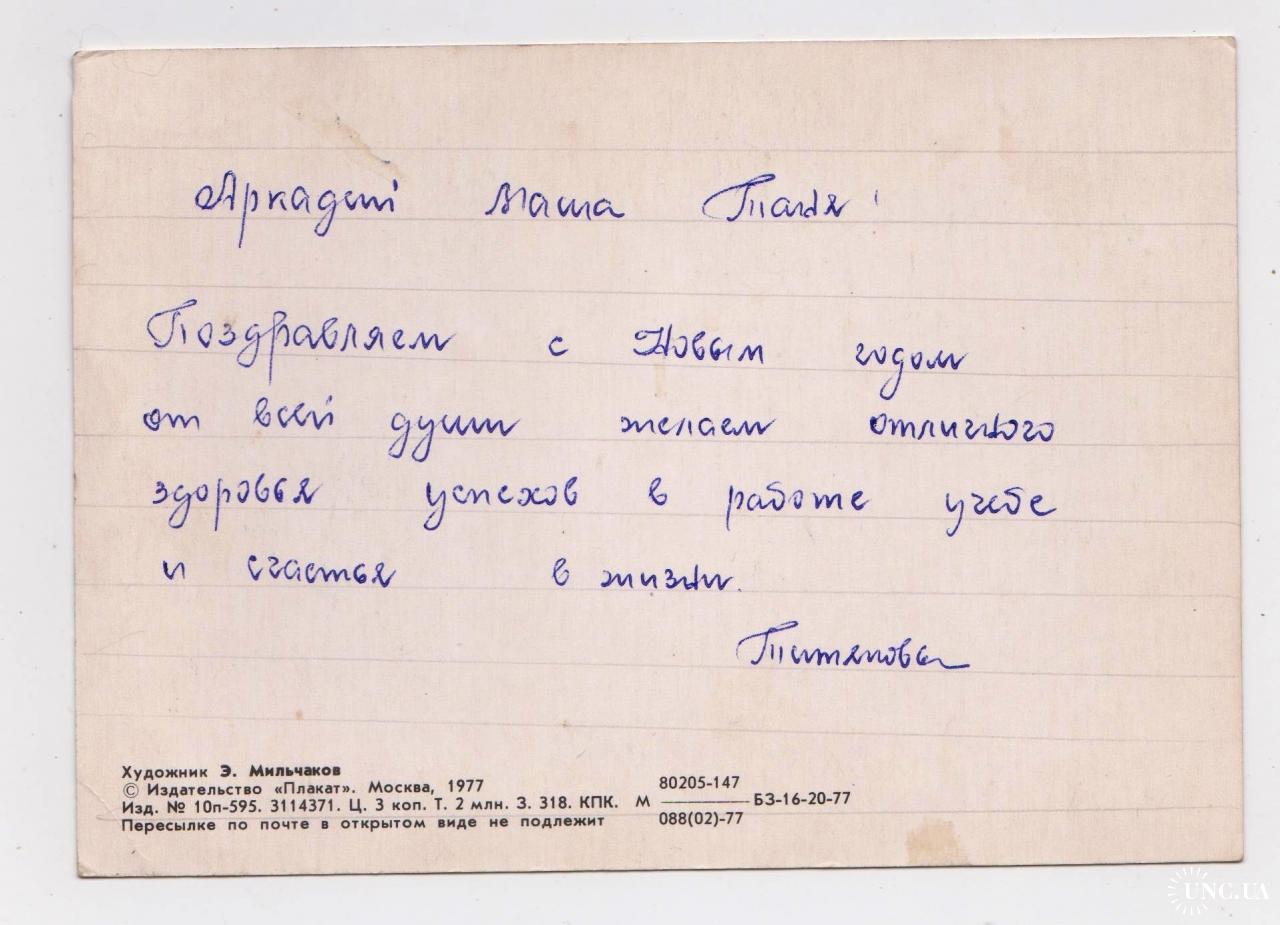 Аркадий Маша Таня!
Поздравляем с Новым годом
от всей души желаем отличного
здоровья успехов в работе учебе
и счастья в жизни.
Художник Э. Мильчаков
© Издательство «Плакат». Москва, 1977
Изд. № 10п-595. 3114371. Ц. 3 коп. Т. 2 млн. З. 318. КПК.
Пересылке по почте в открытом виде не подлежит
80205-147
М ———— БЗ-16-20-77
088(02)-77
UNC.UA